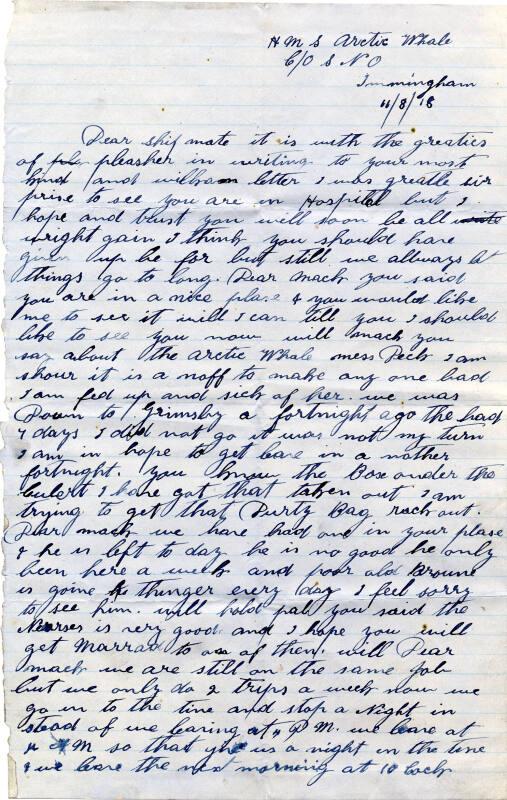 H M S Arctic Whale
C/O S N O
Immingham
11/8/18
Dear ship mate it is with the greaties
of pleasher in writing to your most
kind and wilham letter I was greatle sir
prise to see you are in Hospital but I
hope and trust you will soon be all
wright gain I think you should have
given up be for but still we allways let
things go to long. Dear mack you said
you are in a nice plase & you would like
me to see it will I can till you I should
like to see you now will mack you
say about the Arctic Whale mess Deck I am
shour it is a noff to make any one bad
I am fed up and sick of her. we was
Down to Grimsby a fortnight ago the had
7 days I did not go it was not my turn
I am in hope to get leave in a nother
fortnight. you know the Box onder the
I have got that taken out I am
trying to get that Durty Bag rack out.
Dear mack we have had one in your plase
& he is left to day he is no good he only
been here a week and poor old Browne
is goine thinger every day I feel sorry
to see him. will hold pal you said the
Nurses is very good and I hope you will
get Marrad to one of them. will Dear
mack we are still on the same job
but we only do 2 trips a week now we
go in to the line and stop a Night in
stead of we learing at 4 P M. we leare at
4 A M so that give us a night in the line
& we leare the next morning at 10 Clock